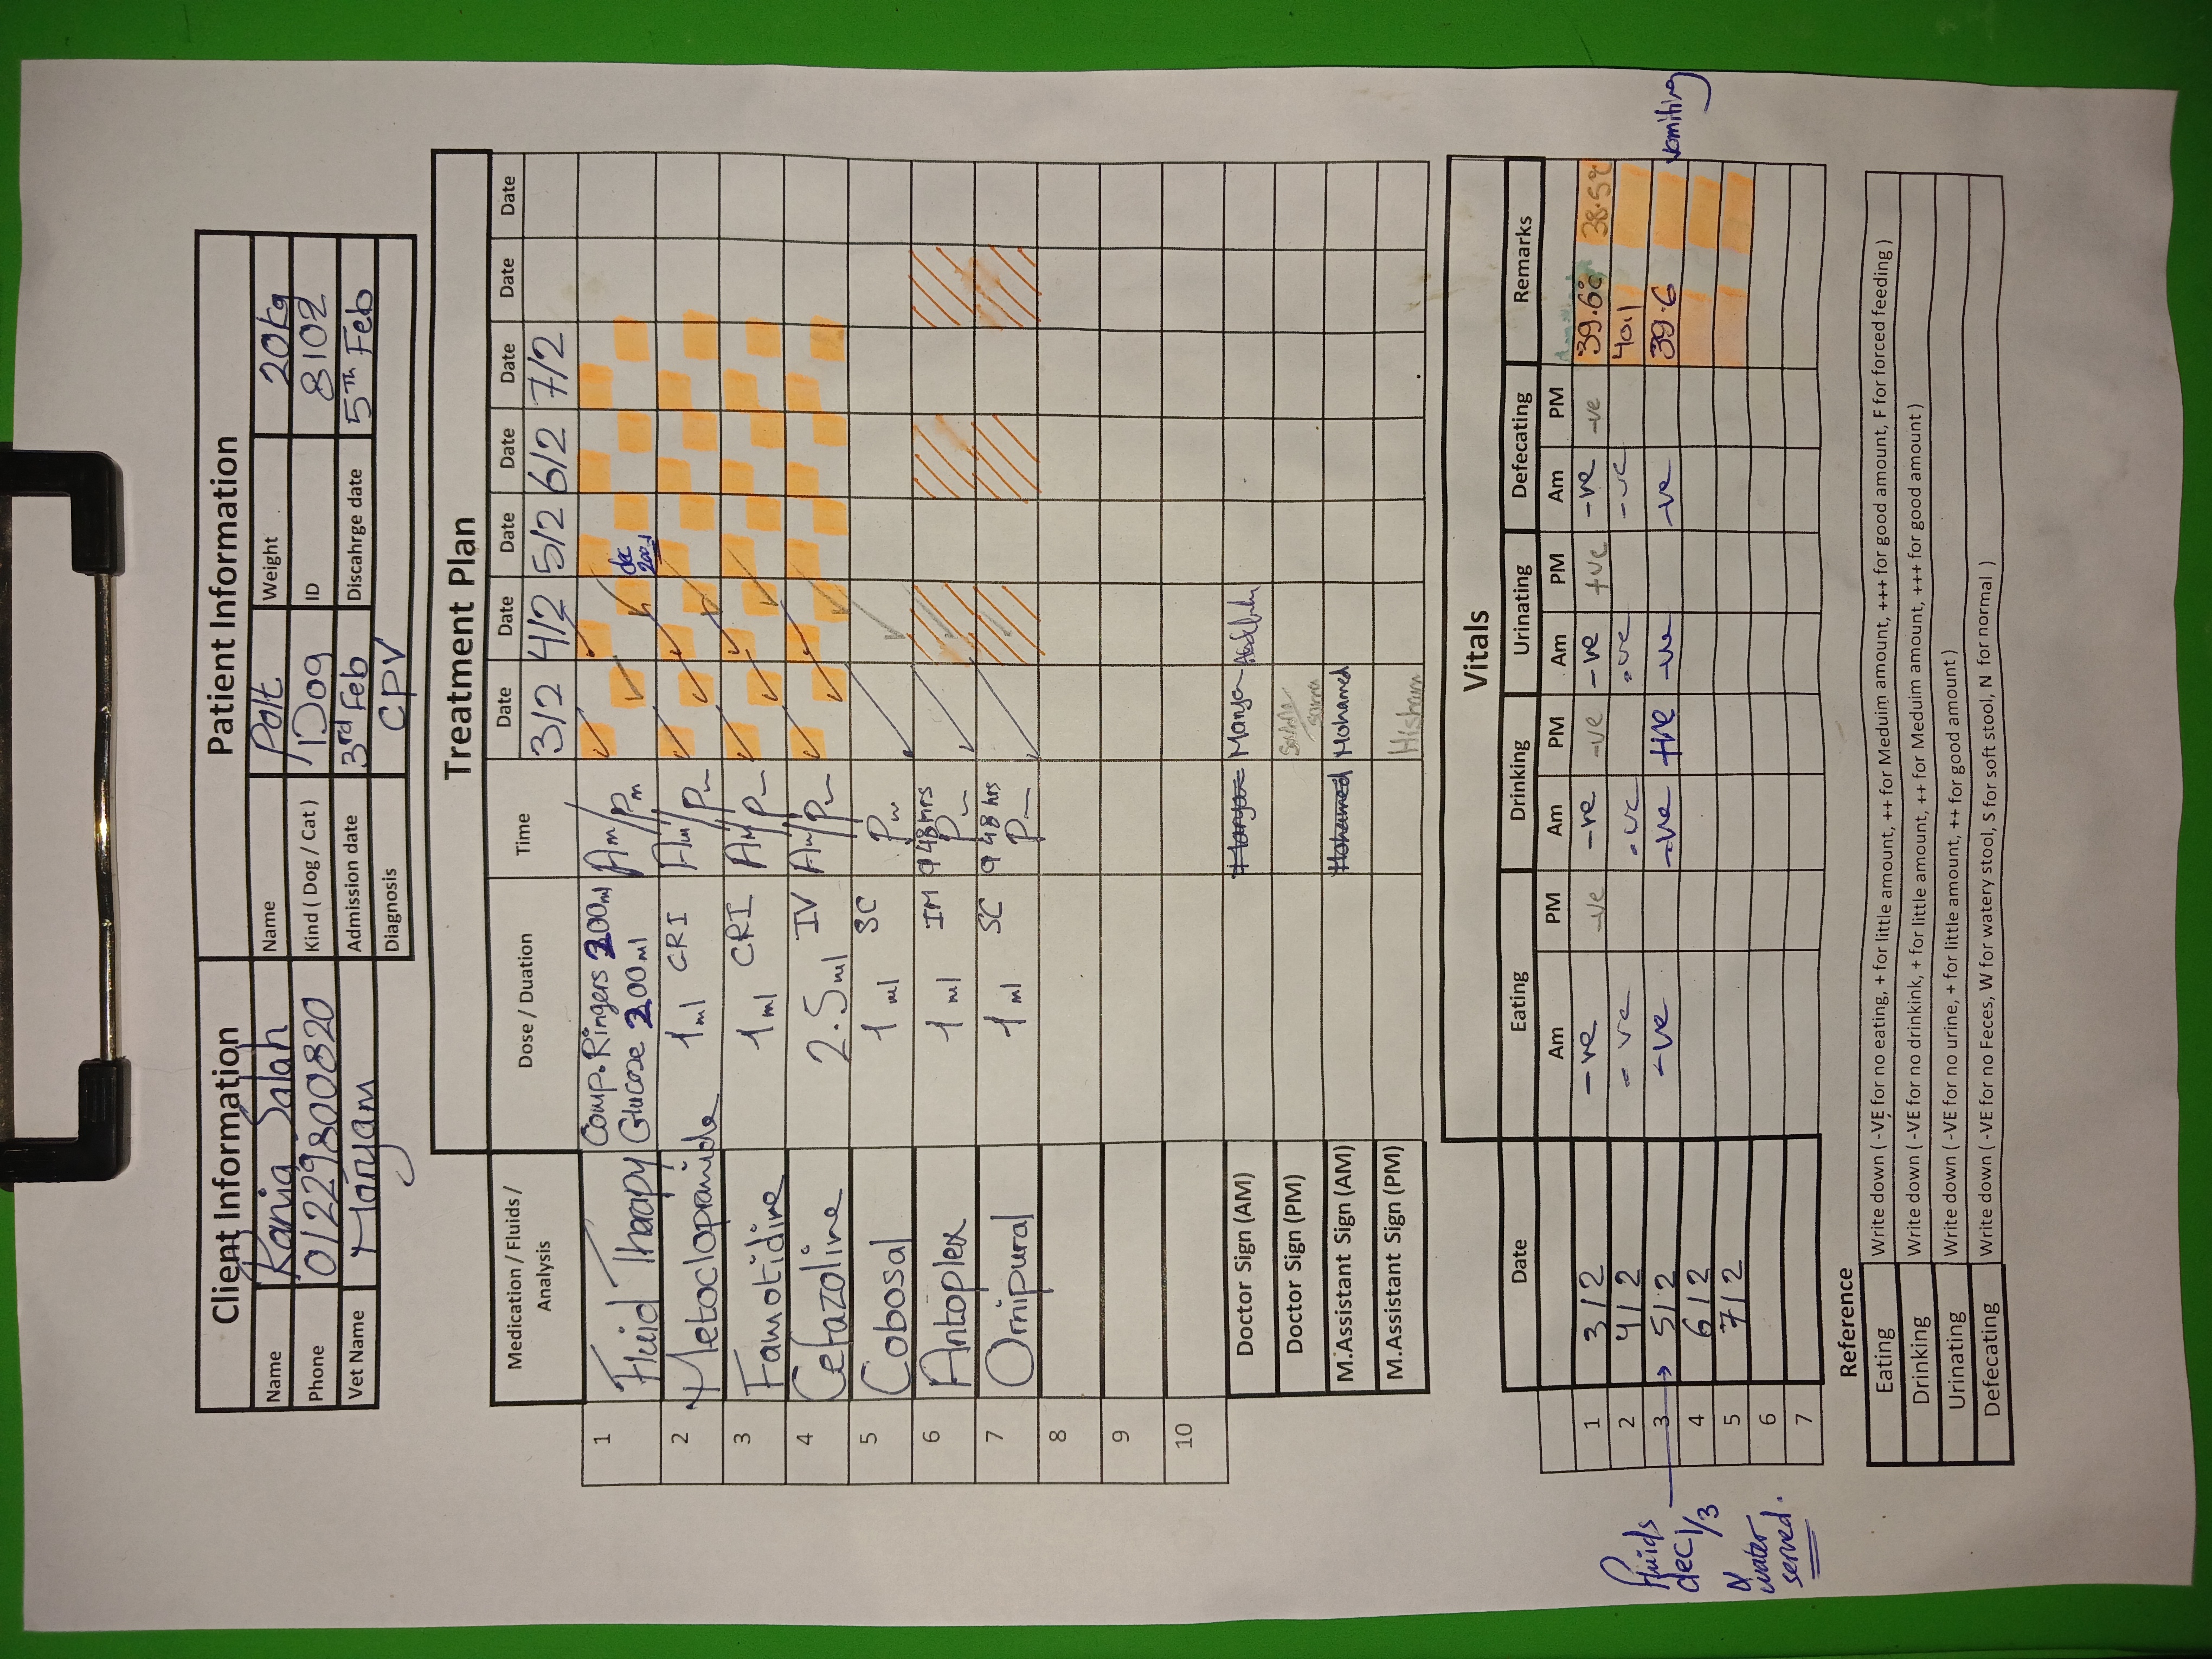 Client Information
Name Rania Salah
Phone 01229800820
Vet Name Maryam
Patient Information
Name Polt Weight 20Kg
Kind ( Dog / Cat ) Dog ID 8102
Admission date 3rd Feb Discahrge date 5Th Feb
Diagnosis CPV
Treatment Plan
Medication / Fluids / Analysis Dose / Duation Time Date Date Date Date Date Date Date
3/2 4/2 5/2 6/2 7/2
1 Fluid Therapy Comp. Ringers 200ml Glucose 200ml Am/Pm dec
2 Metoclopramide 1ml CRI Am/Pm
3 Famotidine 1ml CRI AM/Pm
4 Cefazoline 2.5ml IV Am/Pm
5 Cobosal 1ml SC Pm
6 Antoplex 1ml IM q 48hrs Pm
7 Ornipural 1ml SC q 48 hrs Pm
8
9
10
Doctor Sign (AM) Maryam
Doctor Sign (PM)
M.Assistant Sign (AM) Mohamed Mohamed
M.Assistant Sign (PM) Hisham
Vitals
Date Eating Drinking Urinating Defecating Remarks
Am PM Am PM Am PM Am PM
1 3/2 -ve -ve -ve -ve -ve +ve -ve -ve 39.6c 38.5c
2 4/2 -ve -ve -ve -ve 40.1
3 5/2 -ve -ve +ve -ve -ve 39.6 vomiting
4 6/2
5 7/2
6
7
Fluids
dec 1/3
&
water
served.
Reference
Eating Write down ( -VE for no eating, + for little amount, ++ for Meduim amount, +++ for good amount, F for forced feeding )
Drinking Write down ( -VE for no drinkink, + for little amount, ++ for Meduim amount, +++ for good amount )
Urinating Write down ( -VE for no urine, + for little amount, ++ for good amount )
Defecating Write down ( -VE for no Feces, W for watery stool, S for soft stool, N for normal )